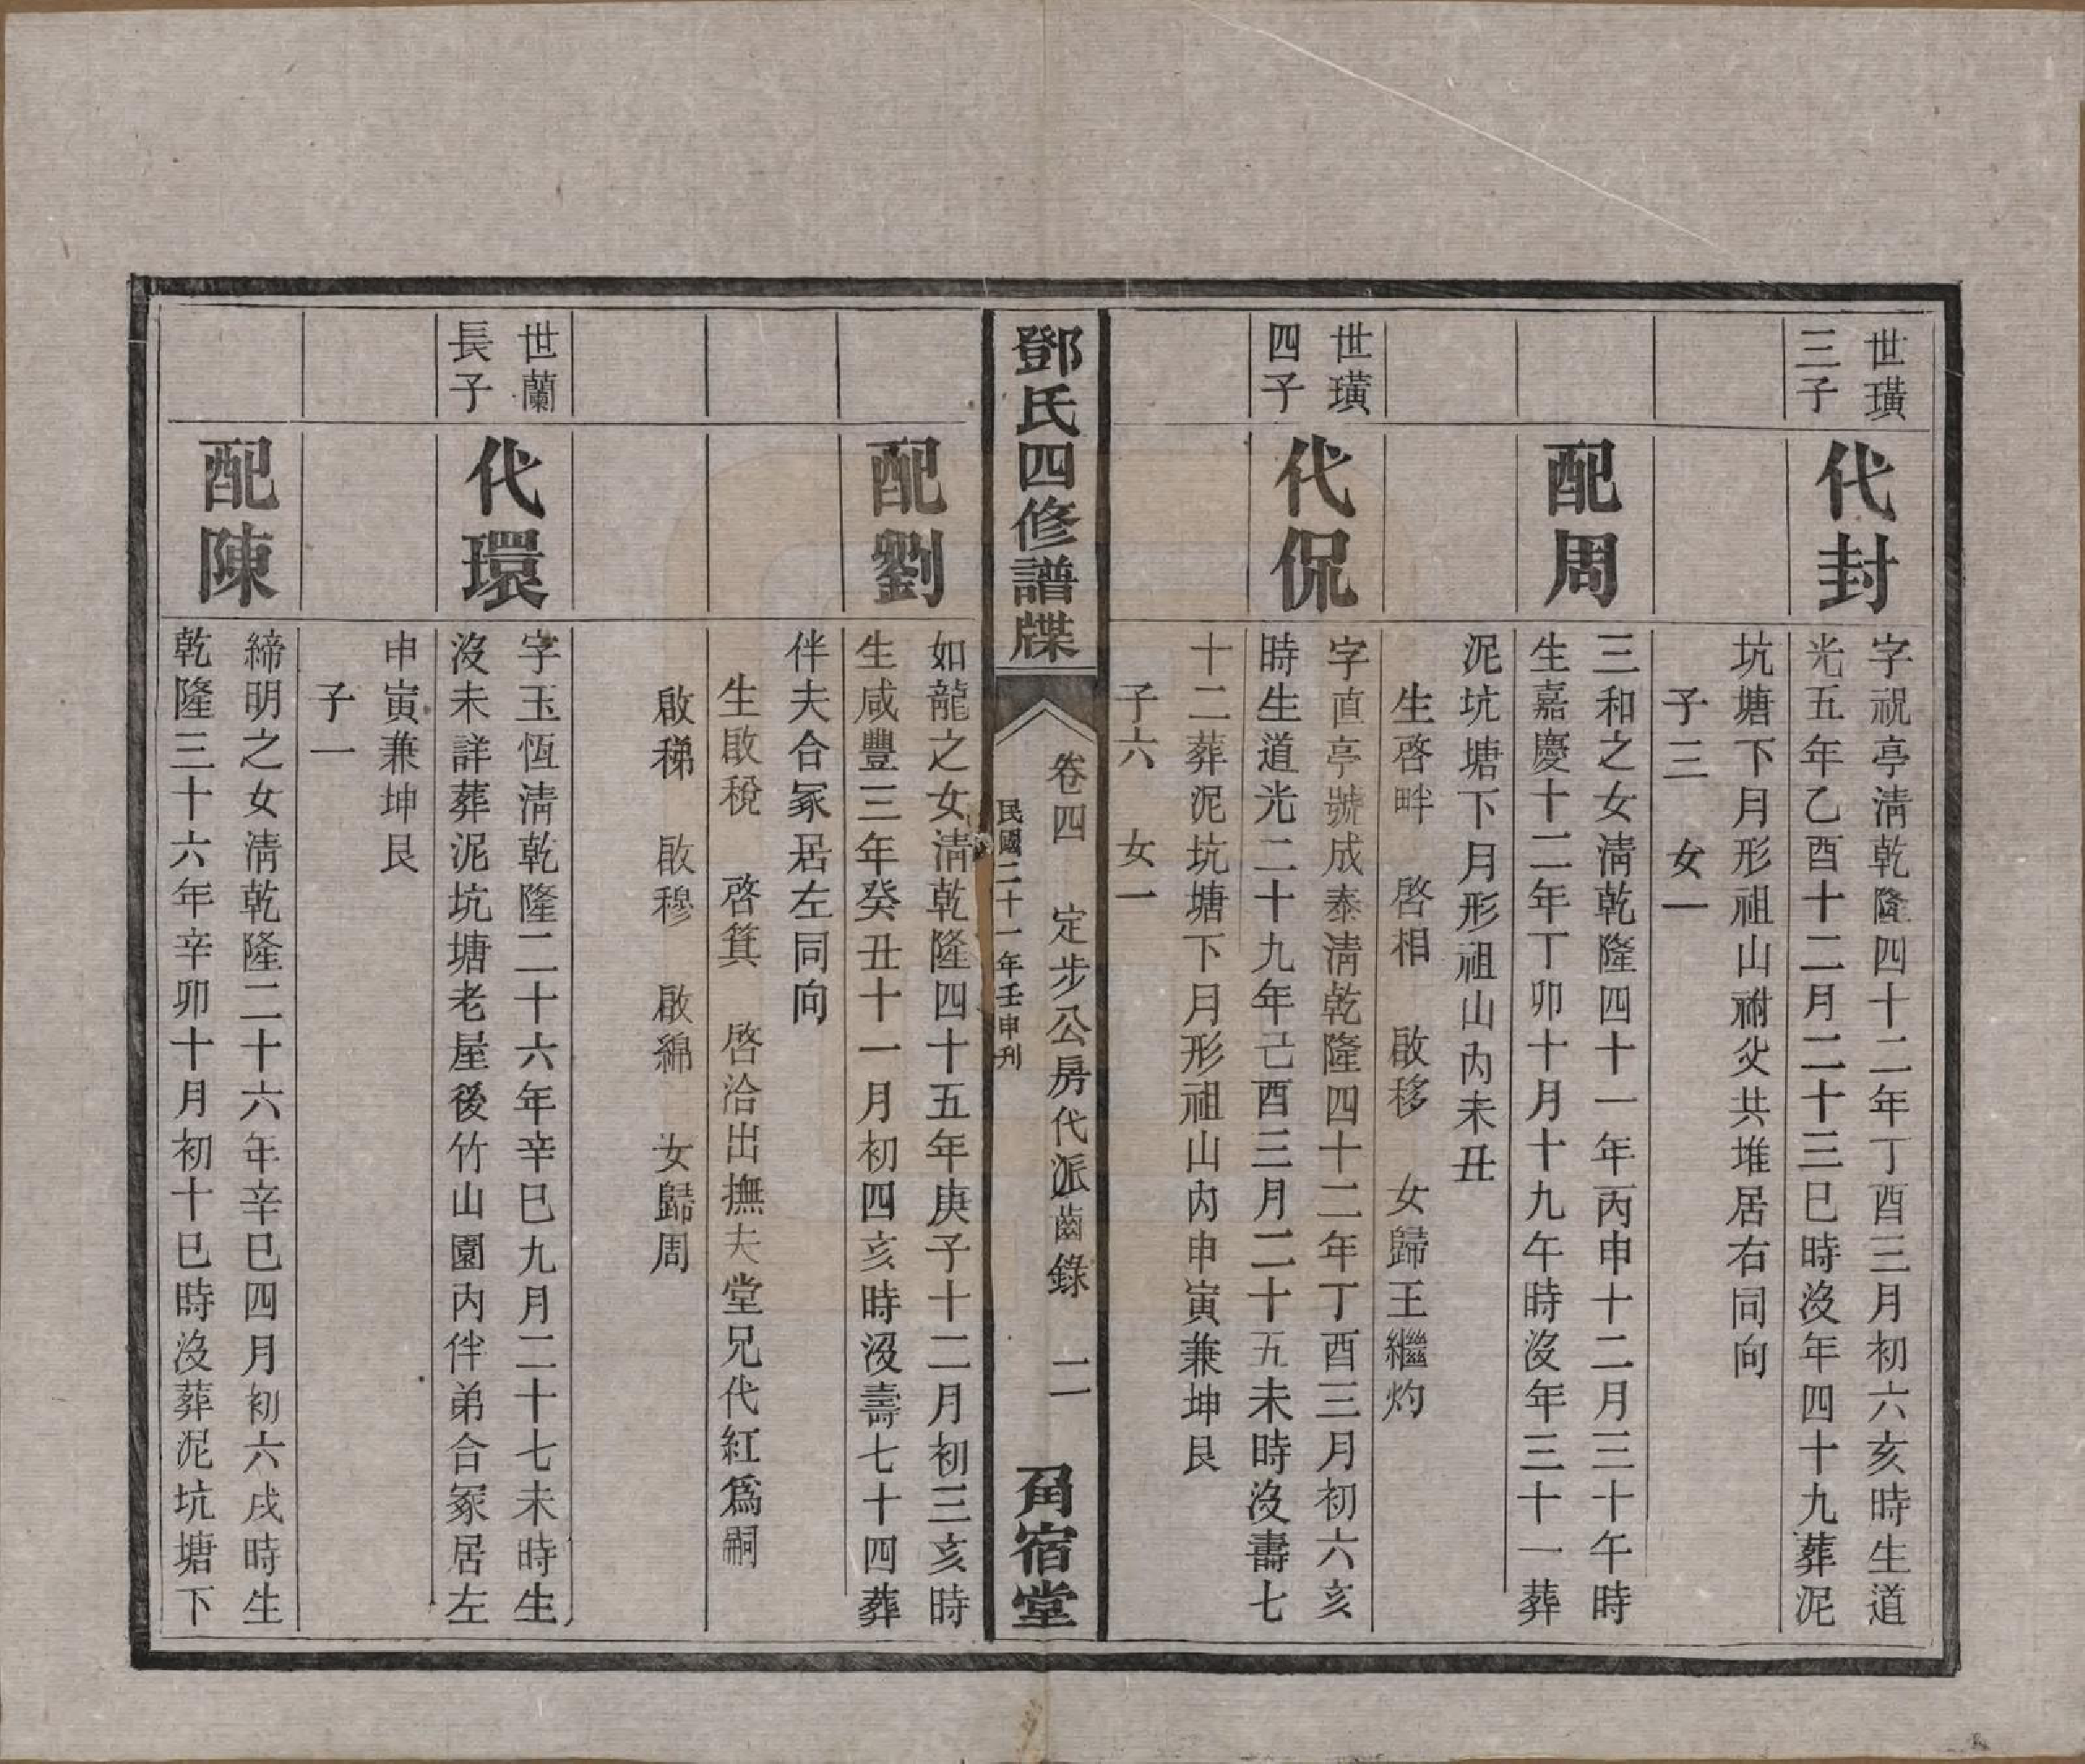 世璜
三子
代封
字祝亭淸乾隆四十二年丁酉三月初六亥時生道
光五年乙酉十二月二十三巳時沒年四十九葬泥
坑塘下月形祖山祔父共堆居右同向
子三 女一
配周
三和之女淸乾隆四十一年丙申十二月三十午時
生嘉慶十二年丁卯十月十九午時沒年三十一葬
泥坑塘下月形祖山內未丑
生啓畔 啓相 啟移 女歸王繼灼
世璜
四子
代侃
字直亭號成泰淸乾隆四十二年丁酉三月初六亥
時生道光二十九年己酉三月二十五未時沒壽七
十二葬泥坑塘下月形祖山內申寅兼坤艮
子六 女一
鄧氏四修譜牒
卷四 定步公房代派齒錄 二
民國二十一年壬申刋
角宿堂
配劉
如龍之女淸乾隆四十五年庚子十二月初三亥時
生咸豐三年癸丑十一月初四亥時沒壽七十四葬
伴夫合冢居左同向
生啟稅 啓箕 啓洽出撫夫堂兄代紅爲嗣
啟稊 啟穆 啟綿 女歸周
世蘭
長子
代環
字玉恆淸乾隆二十六年辛巳九月二十七未時生
沒未詳葬泥坑塘老屋後竹山園內伴弟合冢居左
申寅兼坤艮
子一
配陳
締明之女淸乾隆二十六年辛巳四月初六戌時生
乾隆三十六年辛卯十月初十巳時沒葬泥坑塘下